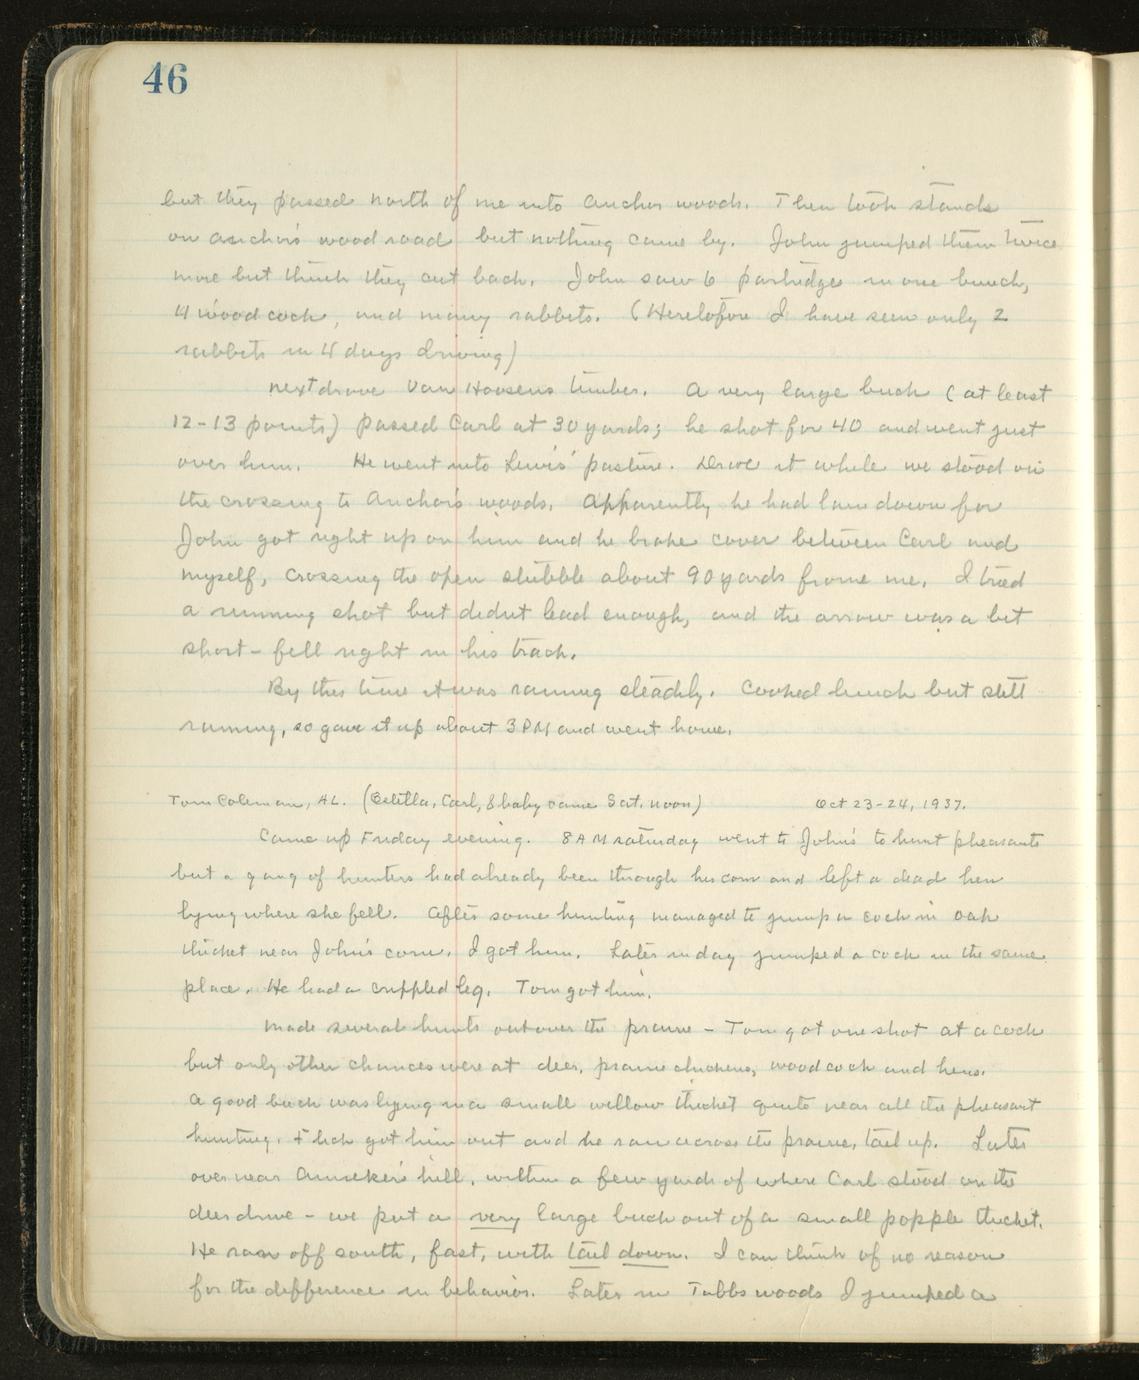 46
but they passed north of me into Anchor woods. Then took stands
on Anchor's wood road but nothing came by. John jumped them twice
more but think they cut back. John saw 6 partridge in one bunch,
4 woodcock, and many rabbits. (Heretofore I have seen only 2
rabbits in 4 days driving)
Next drove Van Hoosens timber. A very large buck (at least
12-13 points) passed Carl at 30 yards; he shot for 40 and went just
over him. He went into Lewis' pasture. Drove it while we stood on
the crossing to Anchor's woods. Apparently he had lain down for
John got right up on him and he broke cover between Carl and
myself, crossing the open stubble about 90 yards from me. I tried
a running shot but didnt lead enough, and the arrow was a bit
short - fell right in his track.
By this time it was raining steadily. Cooked lunch but still
raining, so gave it up about 3 PM and went home.
Tom Coleman, AL. (Estella, Carl, & baby came Sat. noon) Oct 23-24, 1937.
Came up Friday evening. 8 AM Saturday went to John's to hunt pheasants
but a gang of hunters had already been through his corn and left a dead hen
lying where she fell. After some hunting managed to jump a cock in oak
thicket near John's corn. I got him. Later in day jumped a cock in the same
place. He had a crippled leg. Tom got him.
Made several hunts out over the prairie - Tom got one shot at a cock
but only other chances were at deer, prairie chickens, woodcock and hens.
A good buck was lying in a small willow thicket quite near all the pheasant
hunting. Flick got him out and he ran across the prairie, tail up. Later
over near hill, within a few yards of where Carl stood on the
deer drive - we put a very large buck out of a small popple thicket.
He ran off south, fast, with tail down. I can think of no reason
for the difference in behavior. Later in Tubbs woods I jumped a